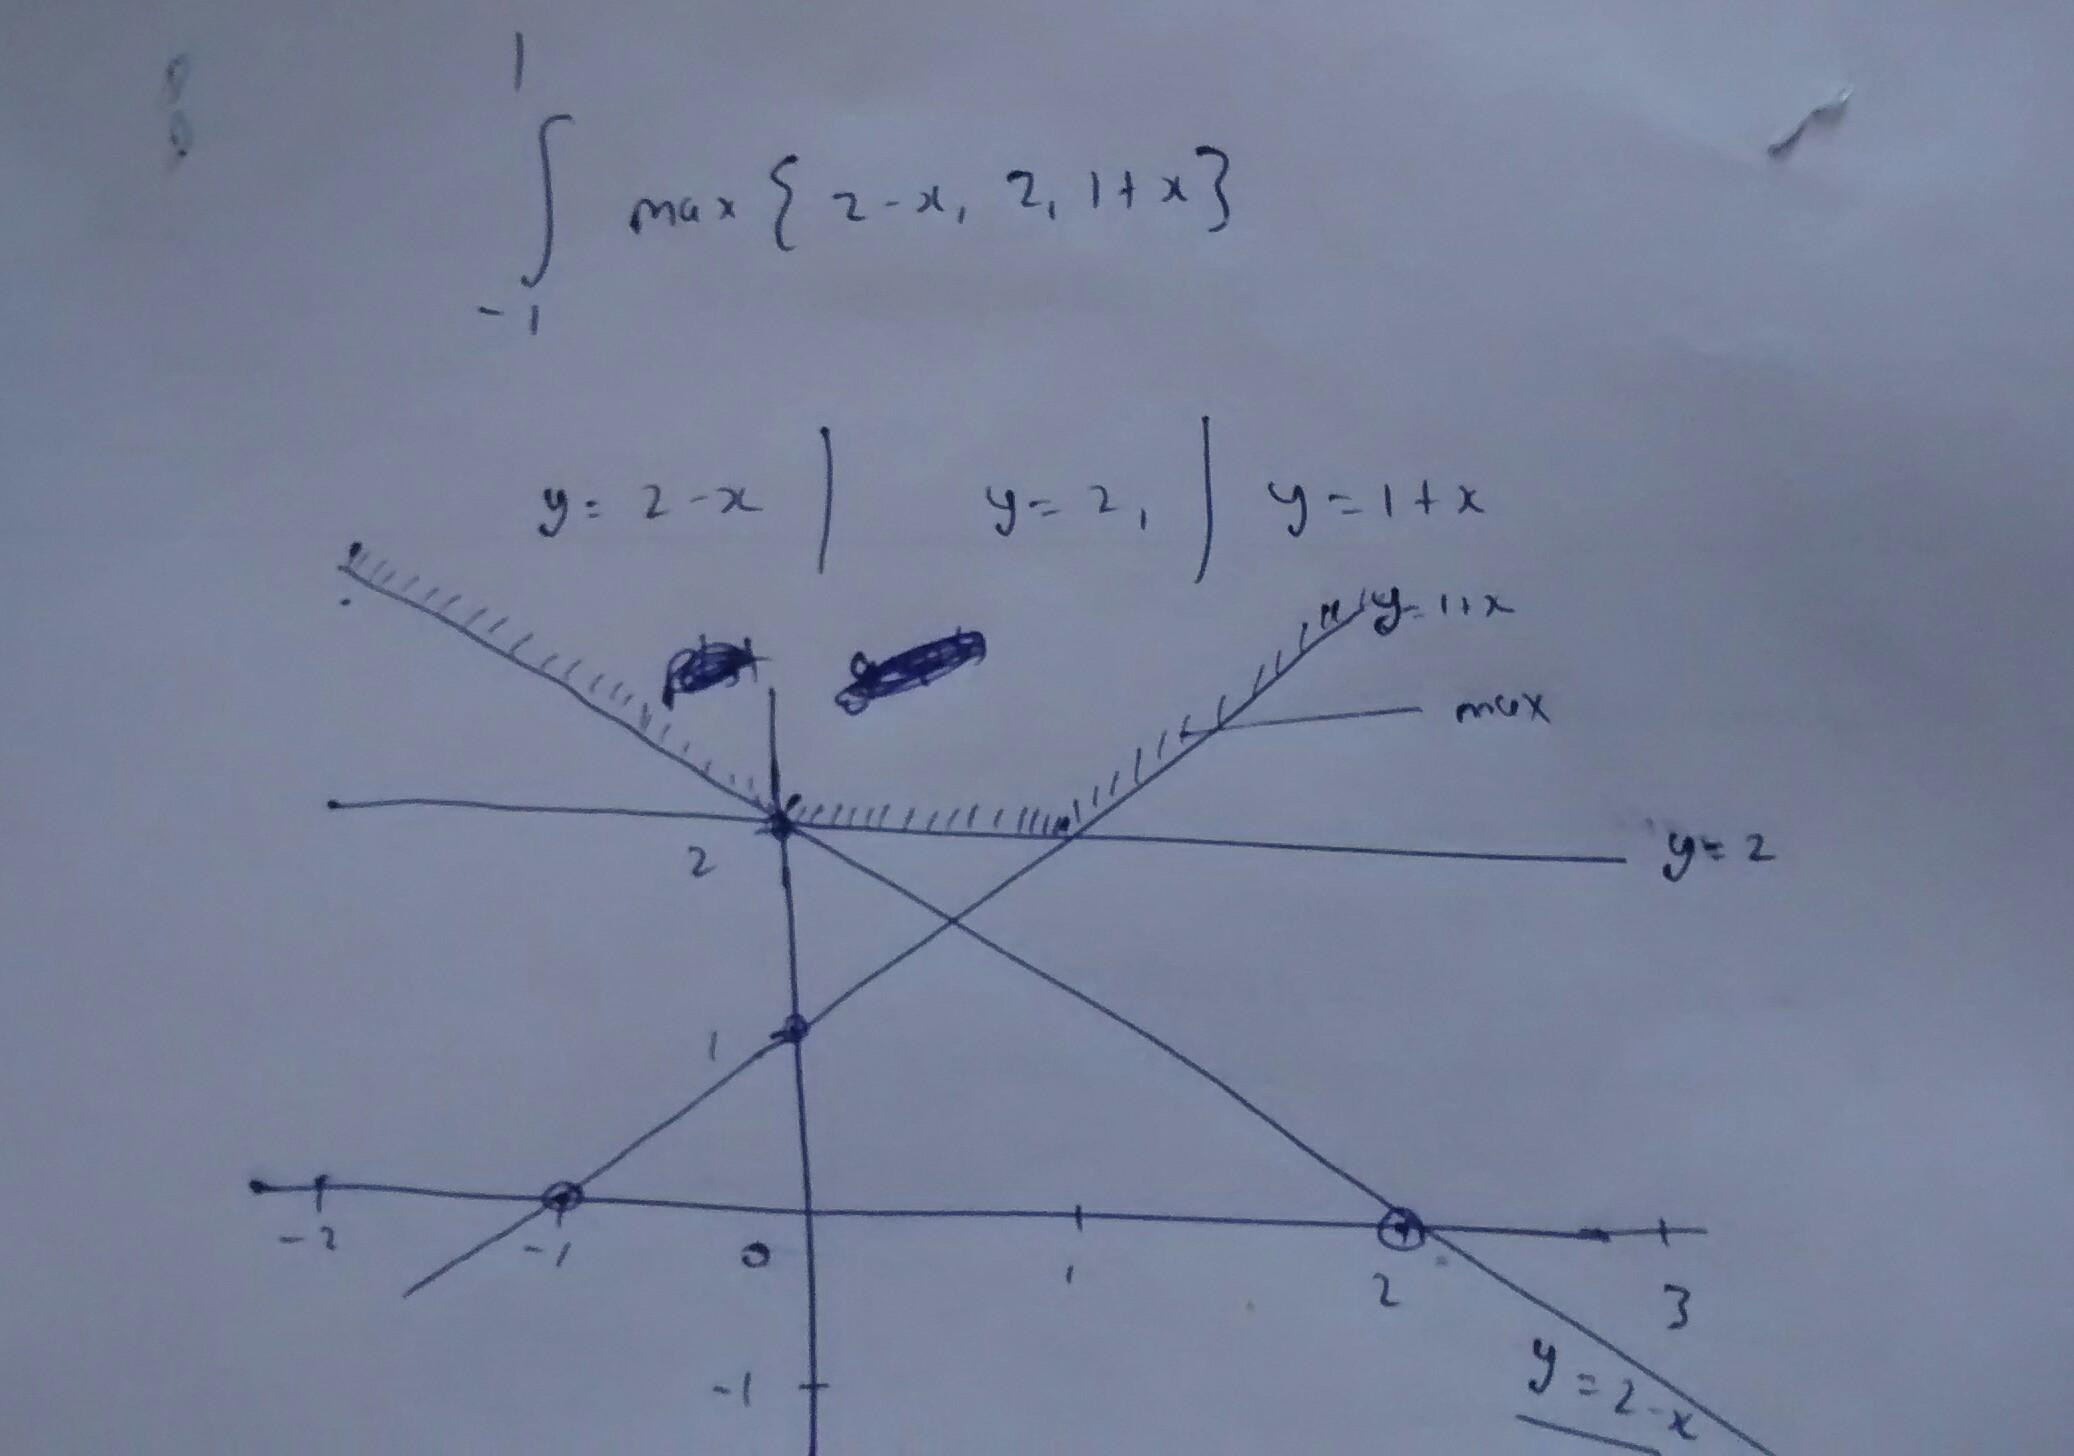 1
∫ max { 2-x, 2, 1+x }
-1
y = 2-x | y = 2, | y = 1+x
y = 1+x
max
2
y = 2
1
-2 -1 0 1 2 3
-1
y = 2-x